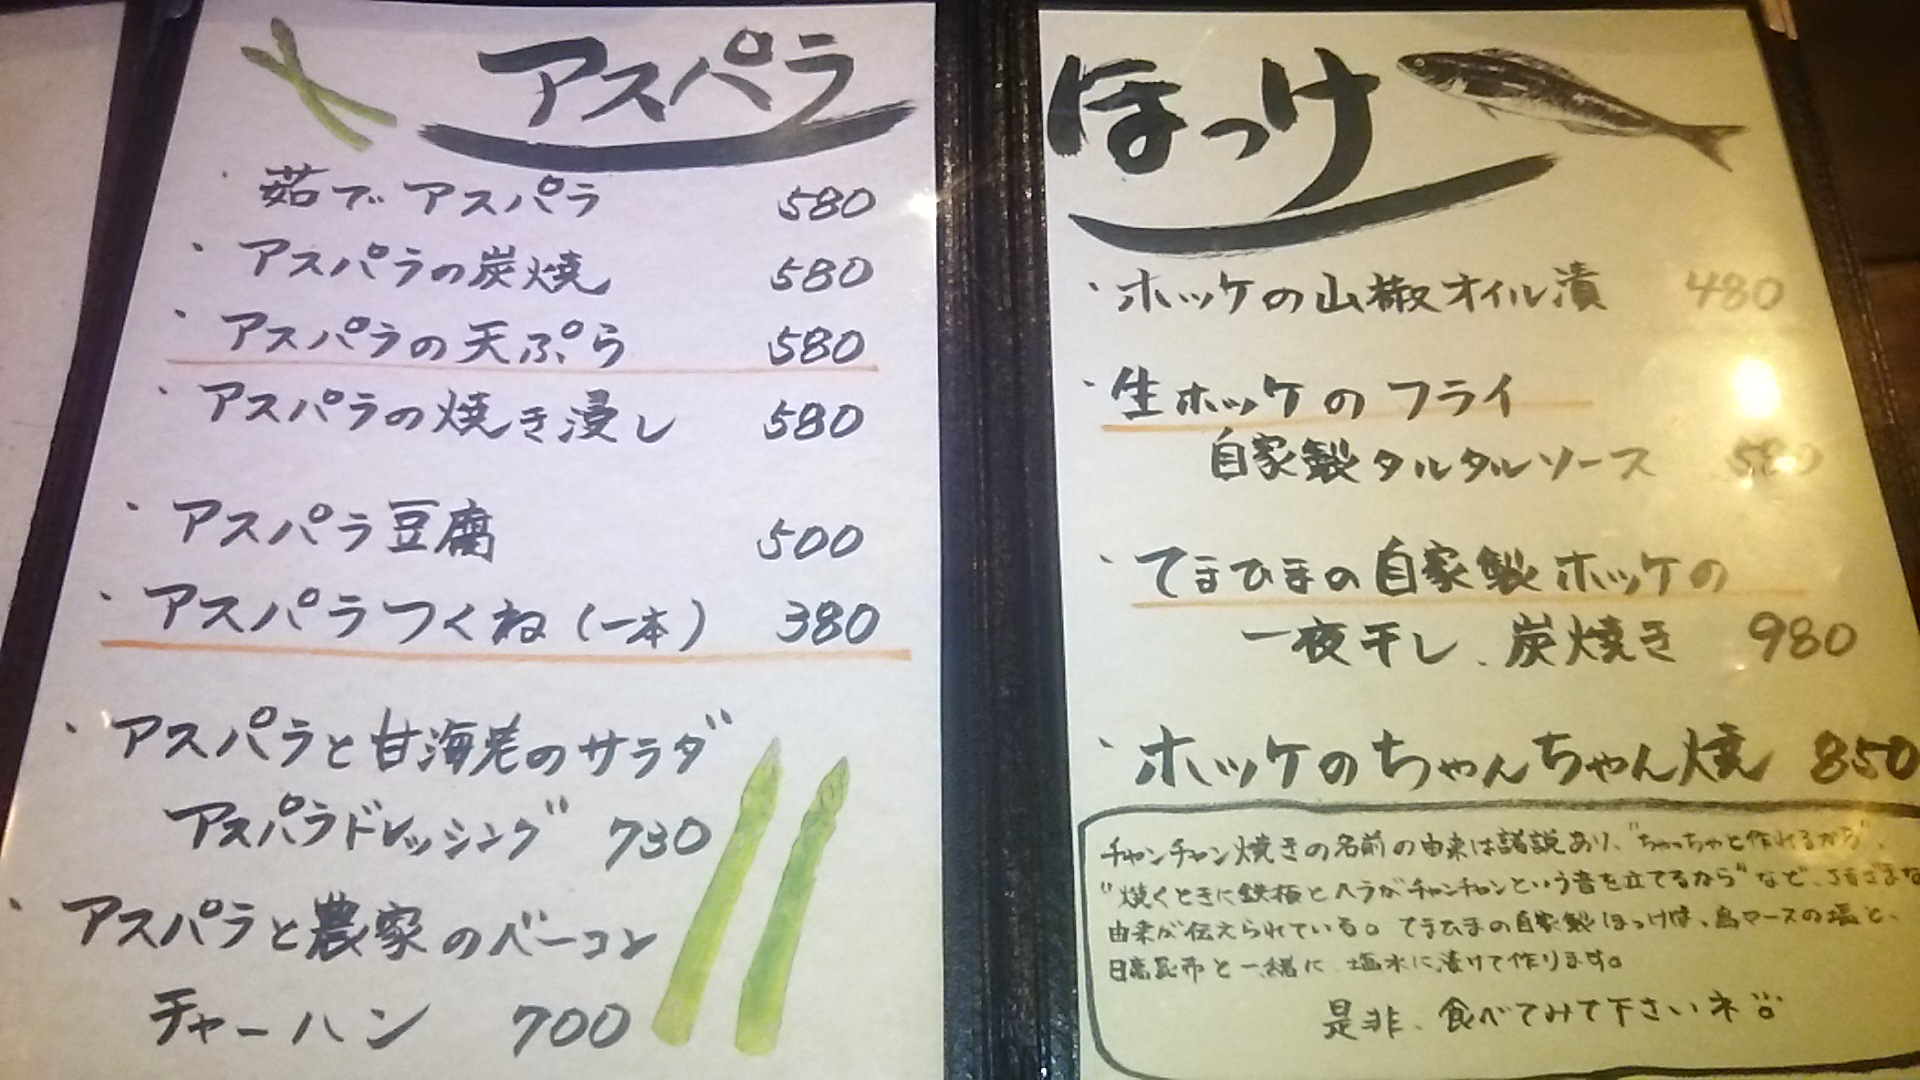 アスパラ
・茹でアスパラ 580
・アスパラの炭焼 580
・アスパラの天ぷら 580
・アスパラの焼き浸し 580
・アスパラ豆腐 500
・アスパラつくね(一本) 380
・アスパラと甘海老のサラダ
アスパラドレッシング 730
・アスパラと農家のベーコン
チャーハン 700
ほっけ
・ホッケの山椒オイル漬 480
・生ホッケのフライ
自家製タルタルソース 580
・てまひまの自家製ホッケの
一夜干し、炭焼き 980
・ホッケのちゃんちゃん焼 850
チャンチャン焼きの名前の由来は諸説あり、"ちゃっちゃと作れるから"、
"焼くときに鉄板とヘラがチャンチャンという音を立てるから"など、さまざまな
由来が伝えられている。てまひまの自家製ほっけは、島マースの塩と、
日高昆布と一緒に塩水に漬けて作ります。
是非、食べてみて下さいネ